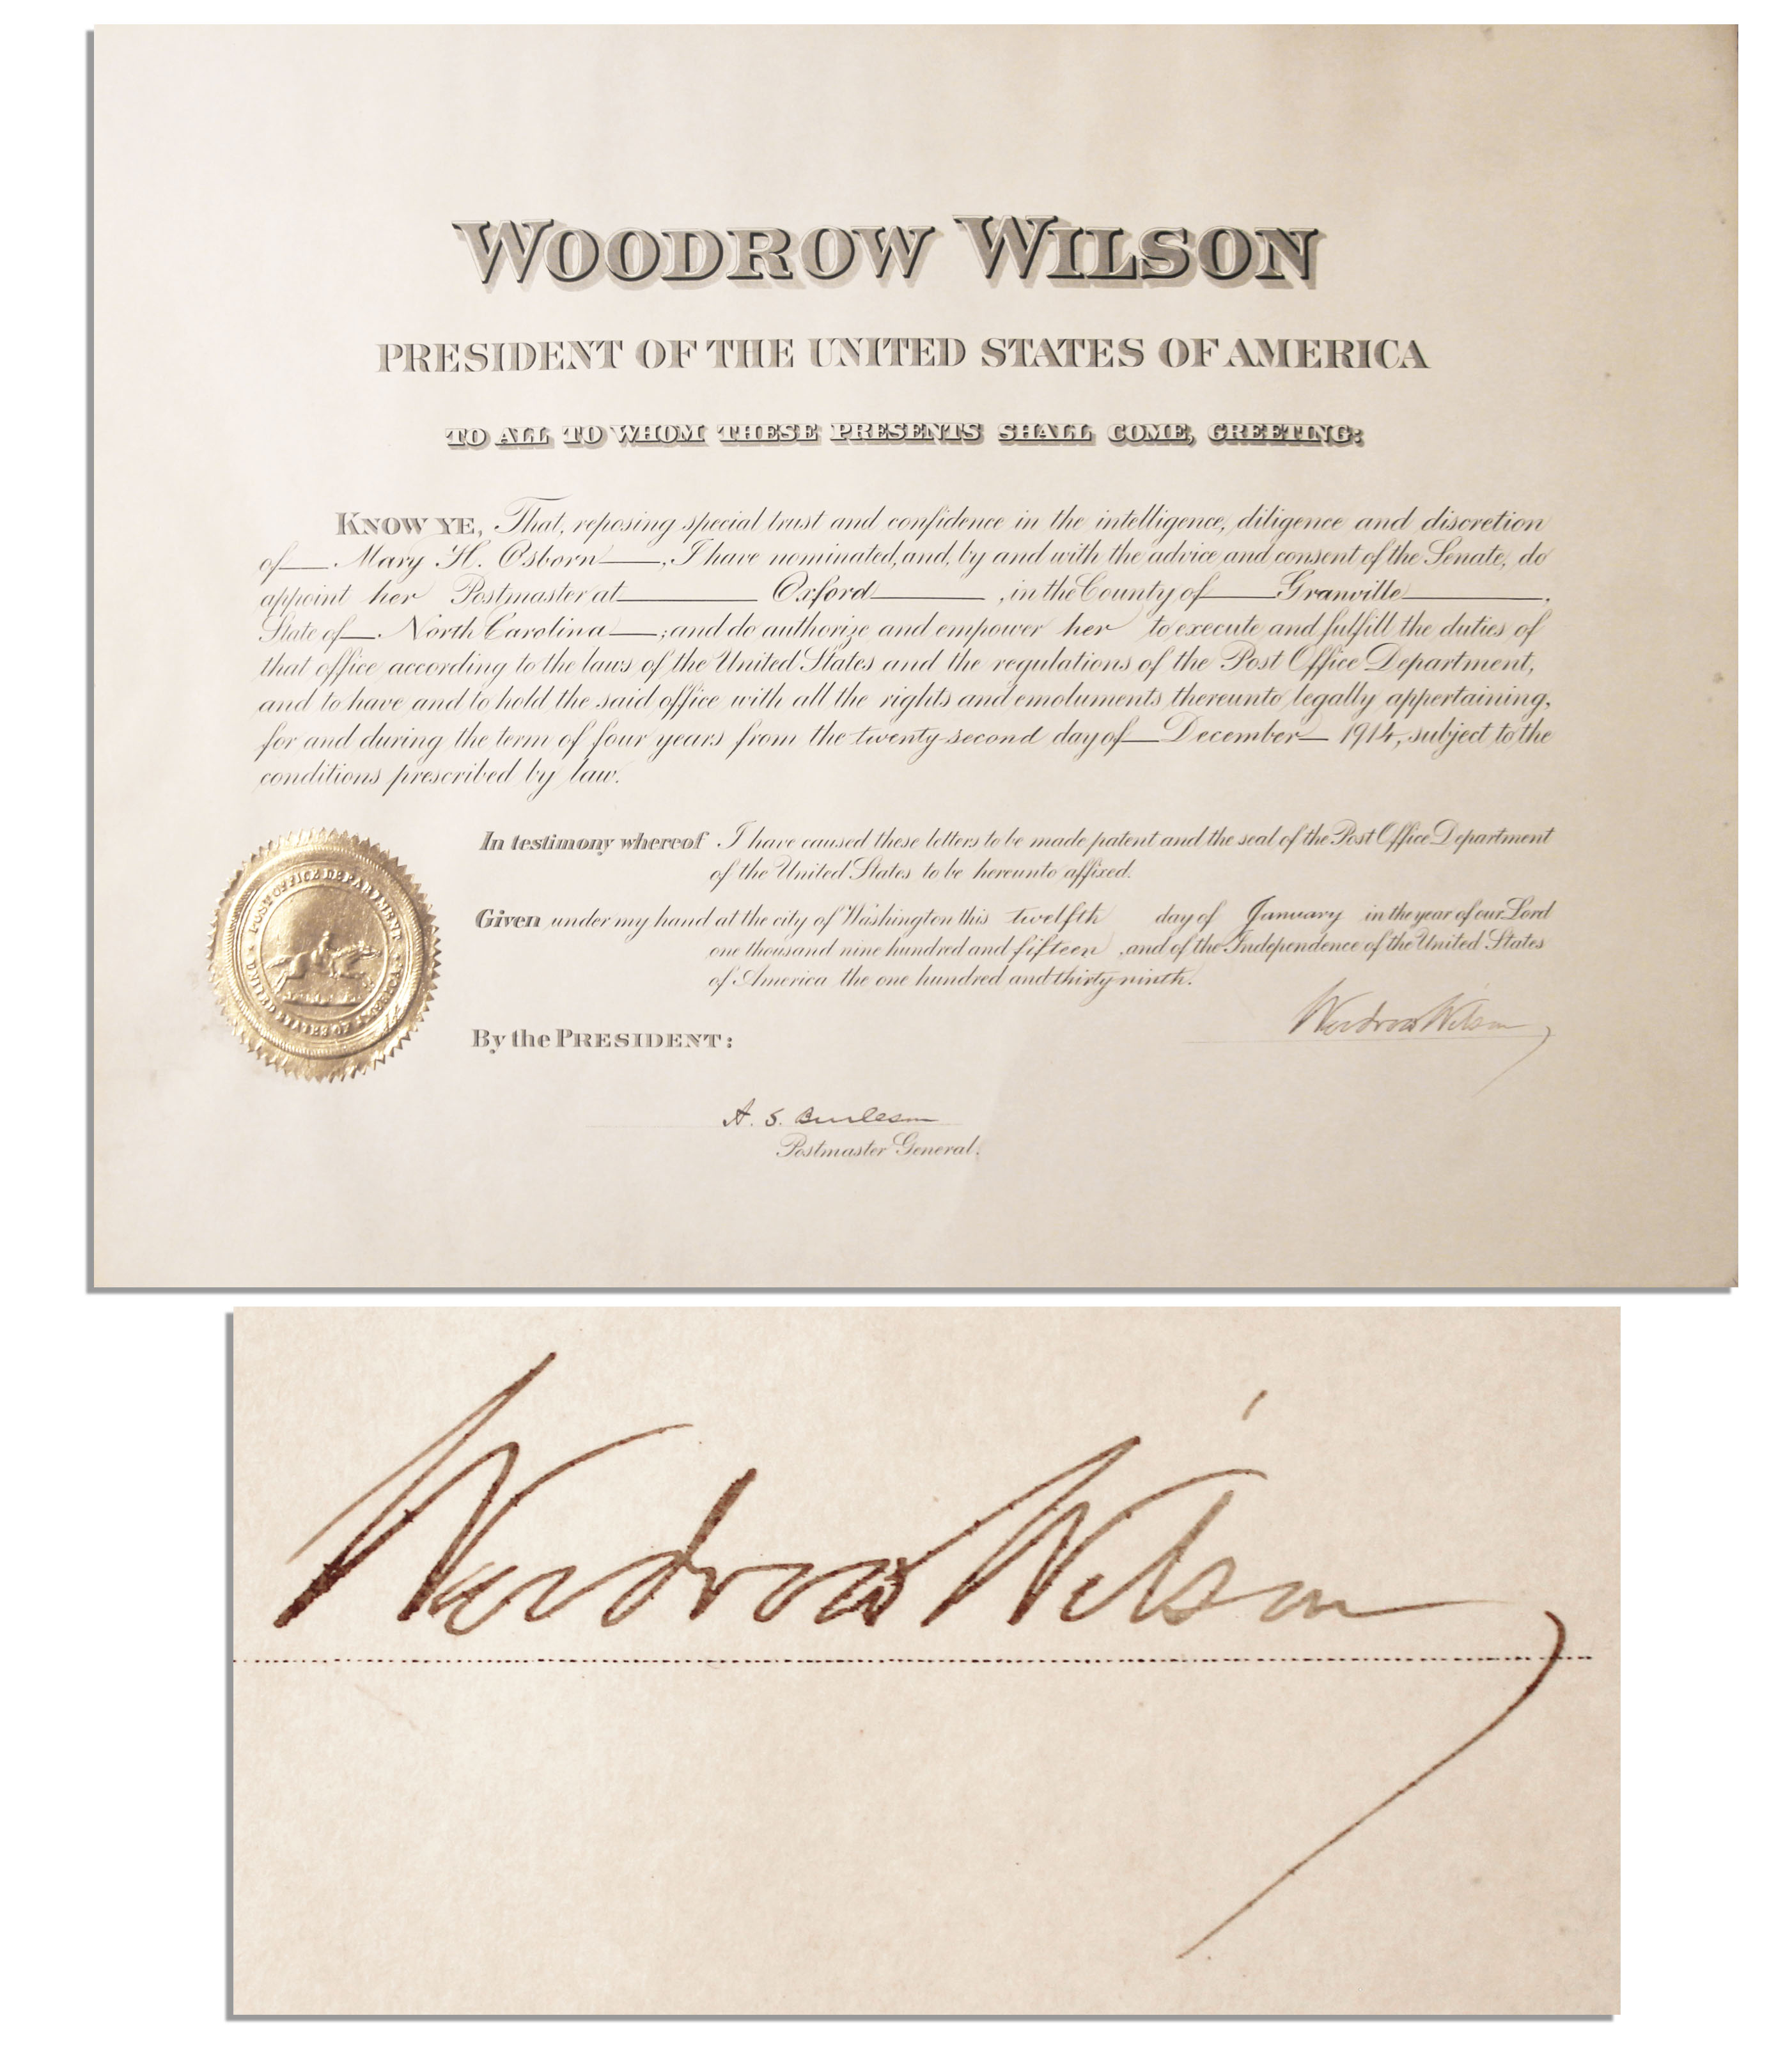 WOODROW WILSON
PRESIDENT OF THE UNITED STATES OF AMERICA
TO ALL TO WHOM THESE PRESENTS SHALL COME, GREETING:
KNOW YE, That, reposing special trust and confidence in the intelligence, diligence and discretion
of Mary H. Osborn, I have nominated, and, by and with the advice and consent of the Senate, do
appoint her Postmaster at Oxford, in the County of Granville,
State of North Carolina; and do authorize and empower her to execute and fulfill the duties of
that office according to the laws of the United States and the regulations of the Post Office Department,
and to have and to hold the said office with all the rights and emoluments thereunto legally appertaining,
for and during the term of four years from the twenty-second day of December 1914, subject to the
conditions prescribed by law.
In testimony whereof I have caused these letters to be made patent and the seal of the Post Office Department
of the United States to be hereunto affixed.
Given under my hand at the city of Washington this twelfth day of January in the year of our Lord
one thousand nine hundred and fifteen, and of the Independence of the United States
of America the one hundred and thirty-ninth.
POST OFFICE DEPARTMENT
UNITED STATES OF AMERICA
Woodrow Wilson
By the PRESIDENT:
A. S. Burleson
Postmaster General.
Woodrow Wilson